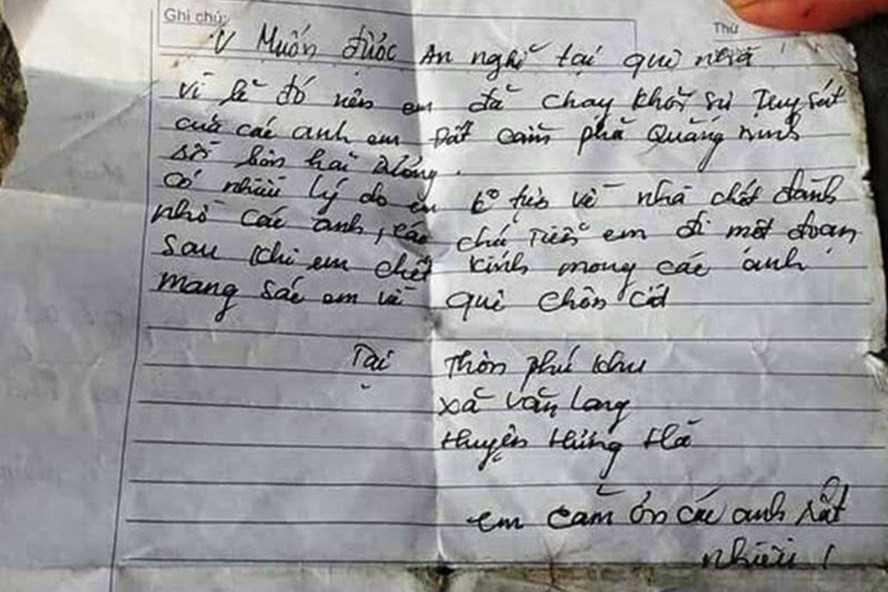 Ghi chú:
Thứ
V Muốn được An nghỉ tại quê nhà
vì lẽ đó nên em đã chạy khỏi sự truy sát
của các anh em Đất cẩm phả Quảng ninh
số hơn hai
có nhiều lý do em tự về nhà chết đành
nhờ các anh, các chú Tiễn em đi một đoạn
sau khi em chết kính mong các anh
mang sác em về quê chôn cất
Tại Thôn phú khu
xã văn lang
Huyện Hưng Hà
em cảm ơn các anh rất
nhiều !